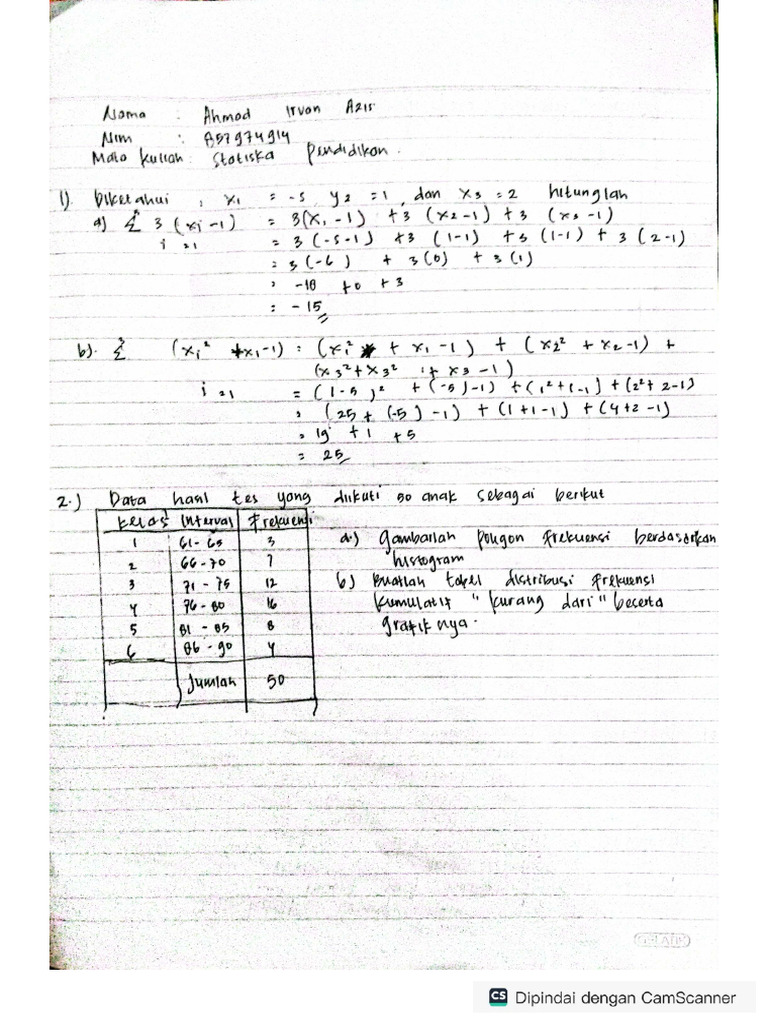 Nama : Ahmad Irvan Azis
Nim : 857974914
Mata kuliah : Statiska Pendidikan.
1). Diketahui, x1 = -5 y2 = 1, dan x3 = 2 hitunglah
a) Σ 3 (xi-1) = 3(x1 - 1) + 3 (x2 - 1) + 3 (x3 - 1)
i = 1 = 3 (-5-1) + 3 (1-1) + 3 (1-1) + 3 (2-1)
= 3 (-6) + 3(0) + 3(1)
= -18 + 0 + 3
= -15
b). Σ (xi² + x1-1) = (xi² + x1 - 1) + (x2² + x2 - 1) +
(x3² + x3² + x3 - 1)
i = 1 = (1-5)² + (-5)-1) + (1²+1-1) + (2²+2-1)
= (25 + (-5) -1) + (1+1-1) + (4+2-1)
= 19 + 1 + 5
= 25
2.) Data hasil tes yang diikuti 50 anak sebagai berikut
Kelas Interval Frekuensi
1 61-65 3
2 66-70 7
3 71-75 12
4 76-80 16
5 81-85 8
6 86-90 4
Jumlah 50
a.) Gambarlah poligon frekuensi berdasarkan
histogram
b) Buatlah tabel distribusi frekuensi
kumulatif "kurang dari" beserta
grafiknya.
CS Dipindai dengan CamScanner